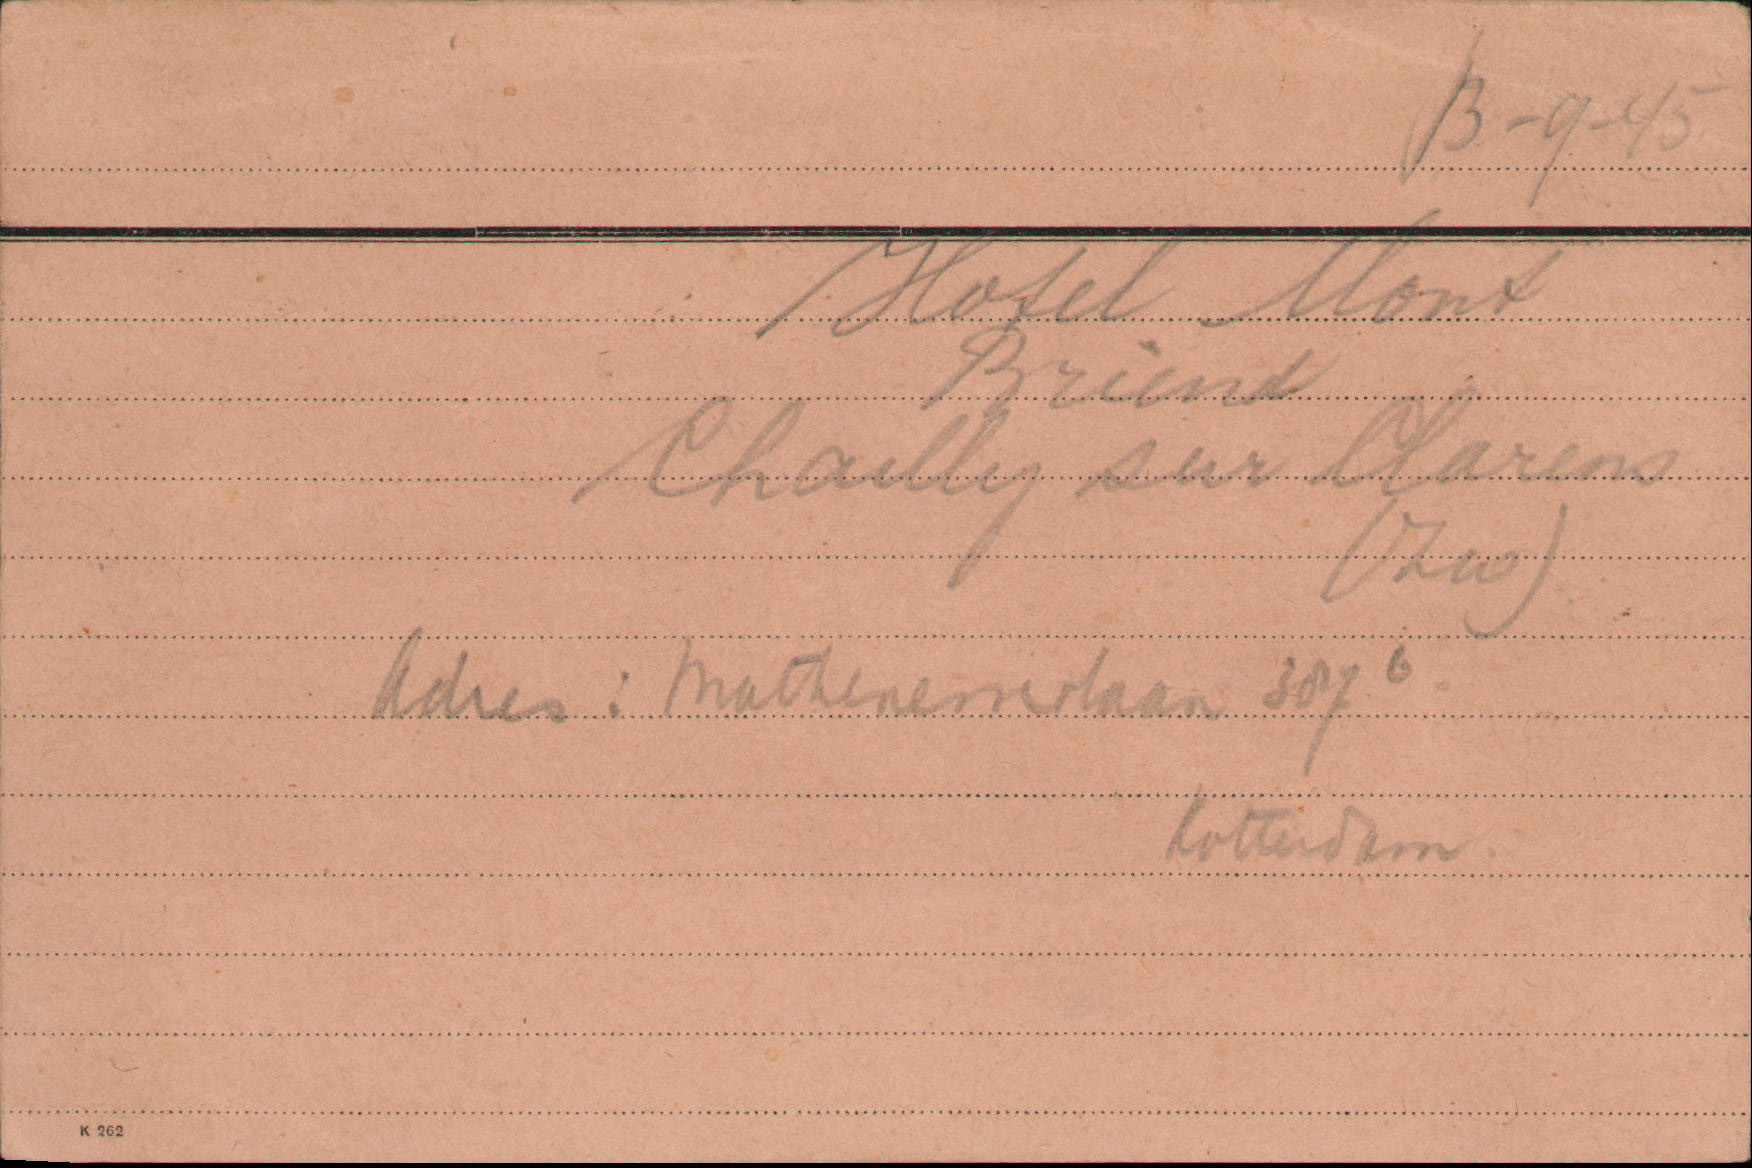 13-9-45
Hotel Mont
Briend
Chailly sur Clarens
(Zw)
Adres : Mathenesserlaan 387 b.
Rotterdam.
K 262